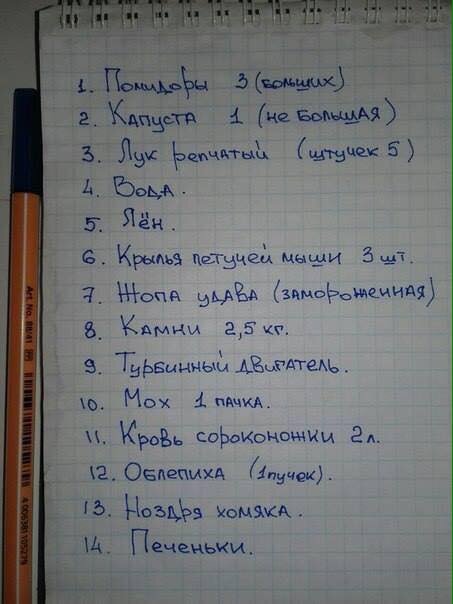 1. Помидоры 3 (больших)
2. Капуста 1 (не большая)
3. Лук репчатый (штучек 5)
4. Вода.
5. Лён.
6. Крылья летучей мыши 3 шт.
7. Жопа удава (замороженная)
8. Камни 2,5 кг.
9. Турбинный двигатель.
10. Мох 1 пачка.
11. Кровь сороконожки 2л.
12. Облепиха (1пучек).
13. Ноздря хомяка.
14. Печеньки.
Art. No. 88/41
4 006381 105279